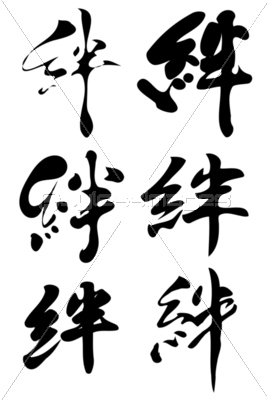 絆 絆
絆 絆
絆 絆